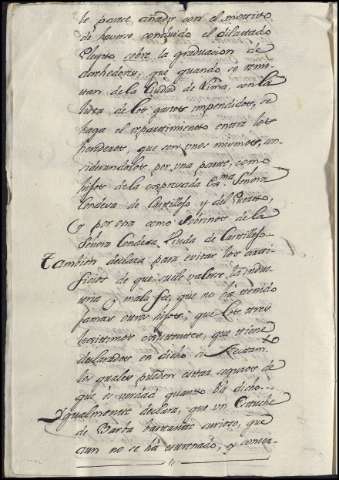 le parece, añadir con el motivo
de haverse concluido el dilatado
Pleyto sobre la graduacion de
Acrehedores, que quando se remi
tan de la Ciudad de Lima, con la
de los gastos impendidos, se
haga el repartimiento entre los
herederos, que son unos mismos, con
siderandolos por una parte, como
hijos de la expresada Señora
Condesa de Castillejo y del Puerto,
y por otra como Sobrinos de la
Señora Condesa Viuda de Castillejo
tambien declara para evitar los arti
ficios de que suele valerse la indus
tria y mala fee, que no ha tenido
jamas otros hijos, que los tres
lexitimos que tiene
declarados en dicho su Testam.to
los quales pueden estar seguros de
que es verdad quanto ha dicho
Igualmente declara, que un Estuche
de Barba que
aun no se ha estrenado, y